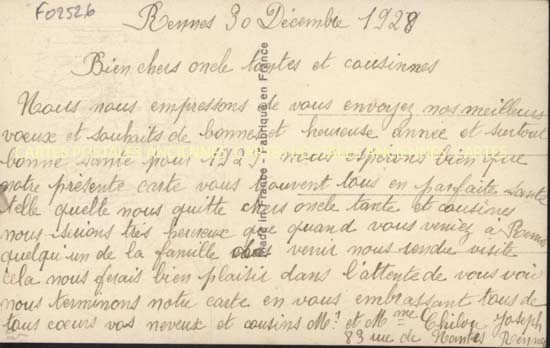 F02526
Rennes 30 Décembre 1928
Bien chers oncle tantes et cousinnes
Nous nous empressons de vous envoyez nos meilleurs
voeux et souhaits de bonne et heureuse année et surtout
bonne santé pour 1929. nous esperons bien que
notre présente carte vous trouvent tous en parfaite santé
telle quelle nous quitte chers oncle tante et cousines
nous serions très heureux que quand vous veniez a Rennes
quelqu'un de la famille venir nous rendre visite
cela nous ferais bien plaisir dans l'attente de vous voir
nous terminons notre carte en vous embrassant tous de
tous coeurs vos neveux et cousins Mr et Mme Joseph
83 rue de Nantes Rennes
Made in France - Fabriqué en France